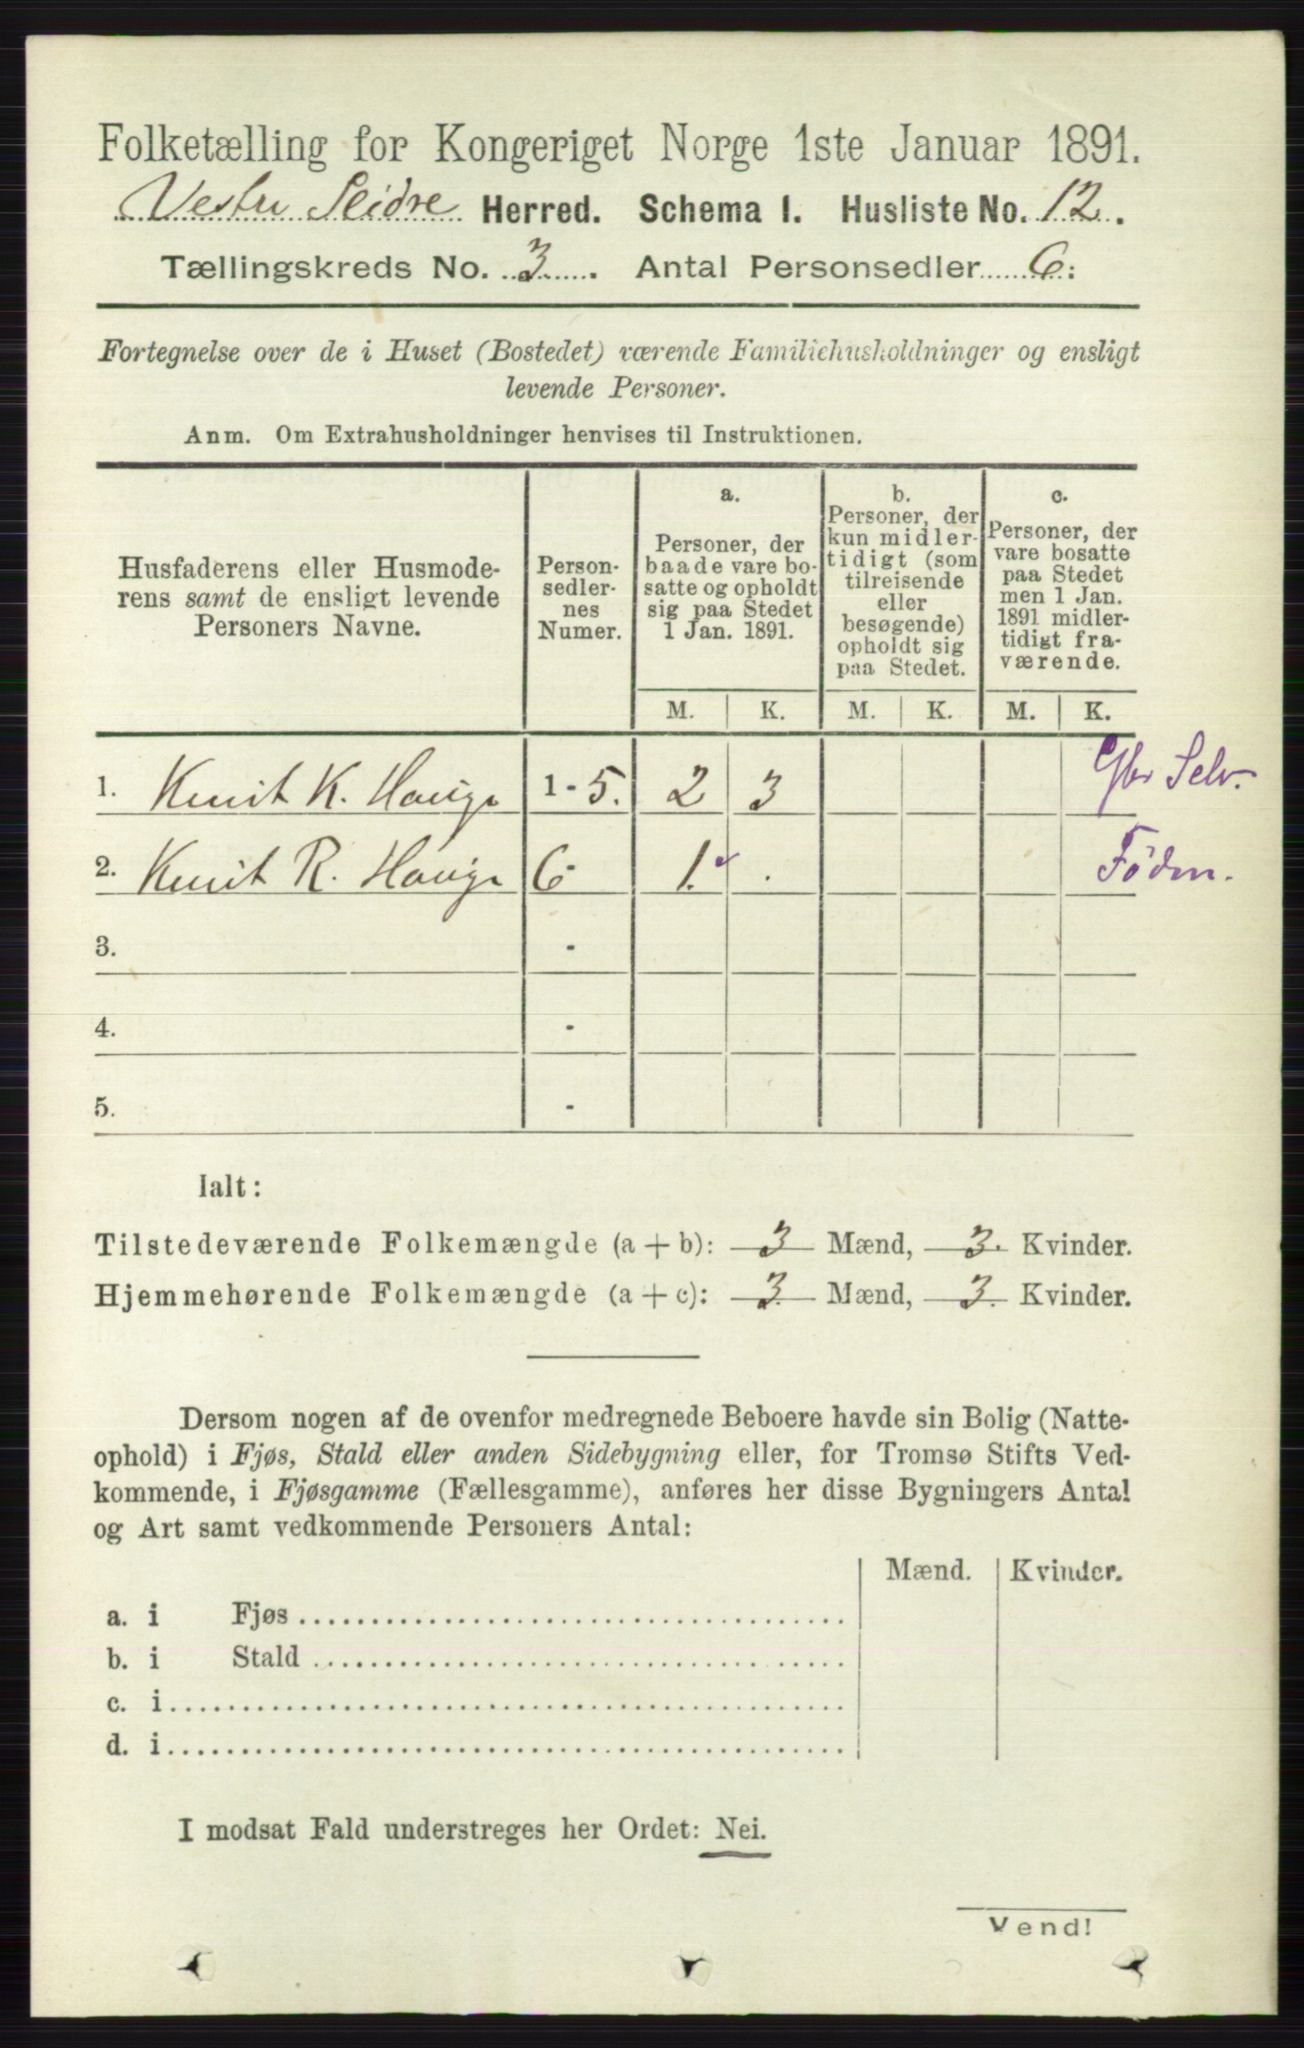 Folketælling for Kongeriget Norge 1ste Januar 1891.
Vestre Slidre Herred. Schema I. Husliste No. 12.
Tællingskreds No. 3. Antal Personsedler 6:
Fortegnelse over de i Huset (Bostedet) værende Familiehusholdninger og ensligt
levende Personer.
Anm. Om Extrahusholdninger henvises til Instruktionen.
Husfaderens eller Husmode-
rens samt de ensligt levende
Personers Navne.
Person-
sedler-
nes
Numer.
a.
Personer, der
baade vare bo-
satte og opholdt
sig paa Stedet
1 Jan. 1891.
b.
Personer, der
kun midler-
tidigt (som
tilreisende
eller
besøgende)
opholdt sig
paa Stedet.
c.
Personer, der
vare bosatte
paa Stedet
men 1 Jan.
1891 midler-
tidigt fra-
værende.
M. K. M. K. M. K.
1. Knut K. Hauge 1 - 5. 2 3 Gbr Selv.
2. Knut R. Hauge 6 - 1. . Föder.
3. -
4. -
5. -
Ialt:
Tilstedeværende Folkemængde (a + b): 3 Mænd, 3. Kvinder.
Hjemmehørende Folkemængde (a + c): 3. Mænd, 3. Kvinder.
Dersom nogen af de ovenfor medregnede Beboere havde sin Bolig (Natte-
ophold) i Fjøs, Stald eller anden Sidebygning eller, for Tromsø Stifts Ved-
kommende, i Fjøsgamme (Fællesgamme), anføres her disse Bygningers Antal
og Art samt vedkommende Personers Antal:
Mænd. Kvinder.
a. i Fjøs
b. i Stald
c. i
d. i
I modsat Fald understreges her Ordet: Nei.
Vend!